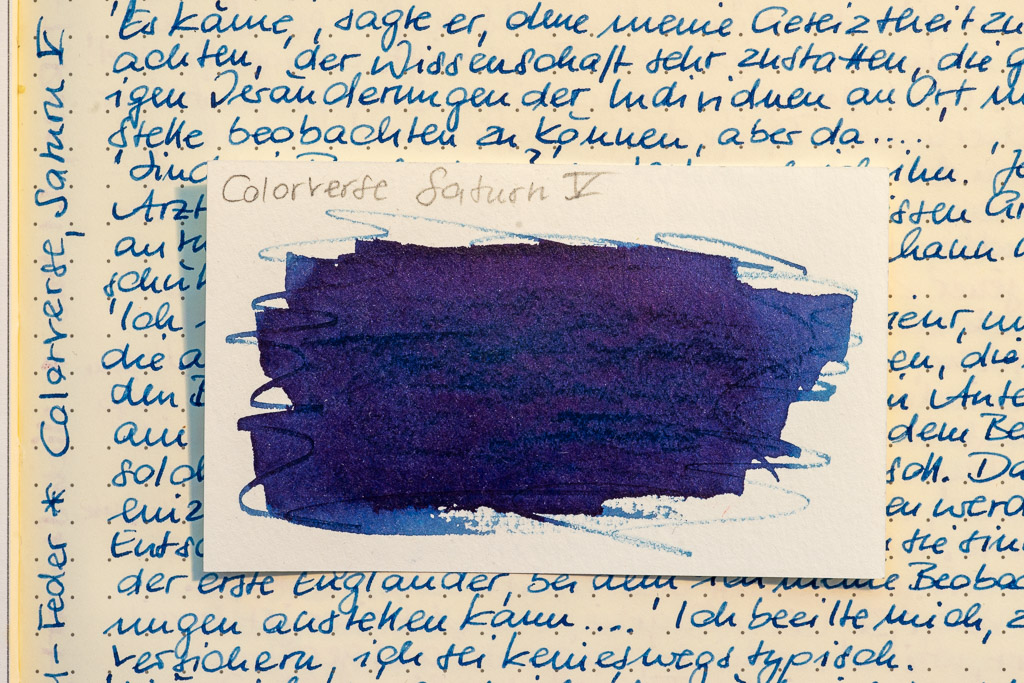 'Es käme, sagte er, dem meine Gereiztheit zu
achten, der Wissenschaft sehr zustatten, die
igen Veränderungen der Individuen an Ort
Stelle beobachten zu können, aber da....'
'Sind ihn.
Arzt issen
an hann
schü
'Ich
die a en, die
den Ante
am dem Be
solch sch. Da
einiz en werd
Entsc sie sin
der erste Engländer, bei dem ich meine Beobac
nungen anstellen kann....' Ich beeilte mich, z
versichern, ich sei keineswegs typisch.
Colorverse Saturn V
Feder * Colorverse, Saturn V